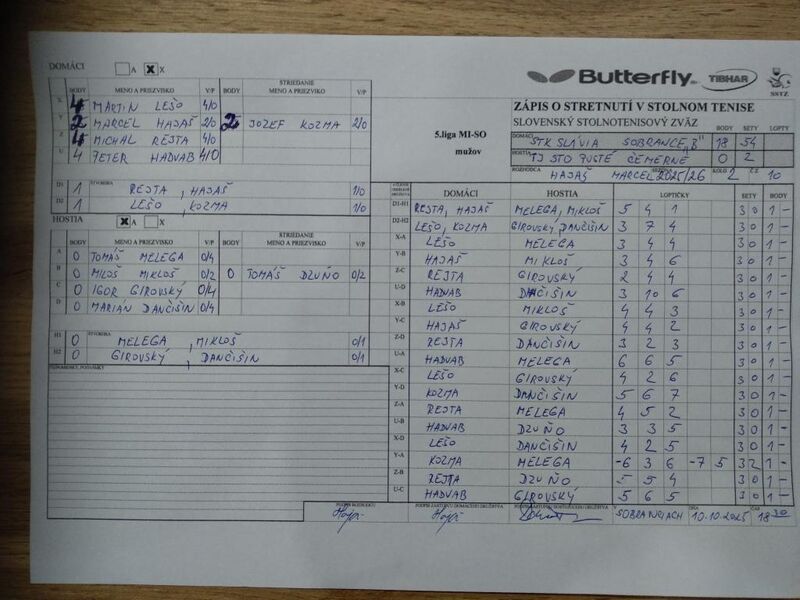 DOMÁCI A X X
BODY MENO A PRIEZVISKO V/P BODY STRIEDANIE MENO A PRIEZVISKO V/P
X 4 MARTIN LEŠO 4/0
Y 2 MARCEL HAJAŠ 2/0 2 JOZEF KOZMA 2/0
Z 4 MICHAL REJTA 4/0
U 4 PETER HADVAB 4/0
D1 1 ŠTVORHRA REJTA, HAJAŠ 1/0
D2 1 LEŠO, KOZMA 1/0
HOSTIA X A X
BODY MENO A PRIEZVISKO V/P BODY STRIEDANIE MENO A PRIEZVISKO V/P
A 0 TOMÁŠ MELEGA 0/4
B 0 MILOŠ MIKLOŠ 0/2 0 TOMÁŠ DZUŇO 0/2
C 0 IGOR GIROVSKÝ 0/4
D 0 MARIÁN DANČIŠIN 0/4
H1 0 ŠTVORHRA MELEGA, MIKLOŠ 0/1
H2 0 GIROVSKÝ, DANČIŠIN 0/1
PRIPOMIENKY, PODPISY
Butterfly TIBHAR SSTZ
5.liga MI-SO
mužov
ZÁPIS O STRETNUTÍ V STOLNOM TENISE
SLOVENSKÝ STOLNOTENISOVÝ ZVÄZ
BODY SETY LOPTY
DOMÁCI STK SLÁVIA SOBRANCE „B" 18 54
HOSTIA TJ STO PUSTÉ ČEMERNÉ 0 2
ROZHODCA HAJAŠ MARCEL 2025/26 KOLO 2 Č.Z. 10
DOMÁCI HOSTIA LOPTIČKY SETY BODY
D1-H1 REJTA, HAJAŠ MELEGA, MIKLOŠ 5 4 1 3 0 1 -
D2-H2 LEŠO, KOZMA GIROVSKÝ, DANČIŠIN 3 7 4 3 0 1 -
X-A LEŠO MELEGA 3 4 4 3 0 1 -
Y-B HAJAŠ MIKLOŠ 3 4 6 3 0 1 -
Z-C REJTA GIROVSKÝ 2 4 4 3 0 1 -
U-D HADVAB DANČIŠIN 3 10 6 3 0 1 -
X-B LEŠO MIKLOŠ 4 4 3 3 0 1 -
Y-C HAJAŠ GIROVSKÝ 4 4 2 3 0 1 -
Z-D REJTA DANČIŠIN 3 2 3 3 0 1 -
U-A HADVAB MELEGA 6 6 5 3 0 1 -
X-C LEŠO GIROVSKÝ 4 2 6 3 0 1 -
Y-D KOZMA DANČIŠIN 5 6 7 3 0 1 -
Z-A REJTA MELEGA 4 5 2 3 0 1 -
U-B HADVAB DZUŇO 3 3 5 3 0 1 -
X-D LEŠO DANČIŠIN 4 2 5 3 0 1 -
Y-A KOZMA MELEGA -6 3 6 -7 5 3 2 1 -
Z-B REJTA DZUŇO 5 5 4 3 0 1 -
U-C HADVAB GIROVSKÝ 5 6 5 3 0 1 -
PODPIS ROZHODCU PODPIS ZÁSTUPCU DOMÁCEHO DRUŽSTVA V SOBRANCIACH DŇA 10.10.2025 ČAS 18 30